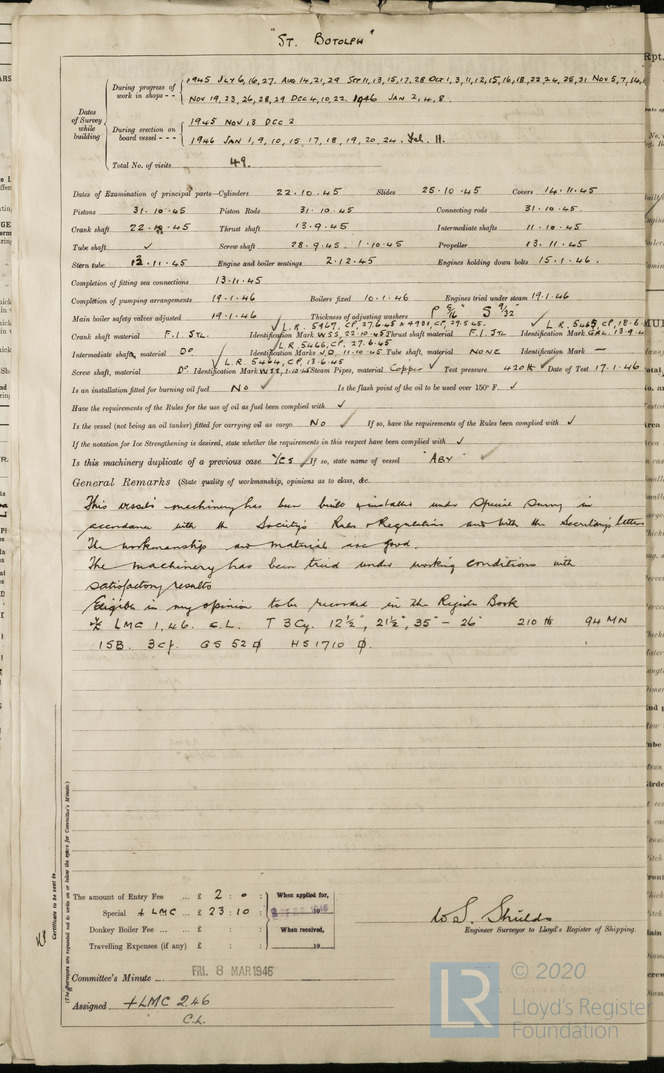 "ST. BOTOLPH"
Dates of Survey while building
During progress of work in shops - -
1945 JLY 6, 16, 27. AUG 14, 21, 29 SEP 11, 13, 15, 17, 28 OCT 1, 3, 11, 12, 15, 16, 18, 22, 24, 25, 31 NOV 5, 7, 14,
NOV 19, 23, 26, 28, 29 DEC 4, 10, 22. 1946 JAN 2, 4, 8.
During erection on board vessel - - - -
1945 NOV 13 DEC 2
1946 JAN 1, 9, 10, 15, 17, 18, 19, 20, 24. Feb. 11.
Total No. of visits 49.
Dates of Examination of principal parts—Cylinders 22.10.45 Slides 25.10.45 Covers 14.11.45
Pistons 31.10.45 Piston Rods 31.10.45 Connecting rods 31.10.45
Crank shaft 22.10.45 Thrust shaft 13.9.45 Intermediate shafts 11.10.45
Tube shaft ✓ Screw shaft 28.9.45. 1.10.45 Propeller 13.11.45
Stern tube 13.11.45 Engine and boiler seatings 2.12.45 Engines holding down bolts 15.1.46.
Completion of fitting sea connections 13.11.45
Completion of pumping arrangements 19.1.46 Boilers fixed 10.1.46 Engines tried under steam 19.1.46
Main boiler safety valves adjusted 19.1.46 Thickness of adjusting washers P 5/16" S 9/32"
L.R. 5467, CP, 27.6.45 & 4981, CP, 29.5.45. L.R. 5465, CP, 18.6.
Crank shaft material F.I. STL. Identification Mark WSS, 22.10.45 Thrust shaft material F.I STL Identification Mark GRL. 13.9.4
L.R. 5466, CP, 27.6.45
Intermediate shafts, material Do Identification Marks J.D. 11.10.45 Tube shaft, material NONE Identification Mark —
L.R. 5464, CP, 13.6.45
Screw shaft, material Do Identification Mark WSS, 1.10.45 Steam Pipes, material Copper ✓ Test pressure 420 lb ✓ Date of Test 17.1.46
Is an installation fitted for burning oil fuel NO ✓ Is the flash point of the oil to be used over 150° F. ✓
Have the requirements of the Rules for the use of oil as fuel been complied with ✓
Is the vessel (not being an oil tanker) fitted for carrying oil as cargo NO ✓ If so, have the requirements of the Rules been complied with ✓
If the notation for Ice Strengthening is desired, state whether the requirements in this respect have been complied with ✓
Is this machinery duplicate of a previous case YES ✓ If so, state name of vessel "ABY" ✓
General Remarks (State quality of workmanship, opinions as to class, &c.
This vessel's machinery has been built & installed under Special Survey in
accordance with the Society's Rules & Regulations and with the Secretary's letters
The workmanship and materials are good.
The machinery has been tried under working conditions with
satisfactory results
Eligible in my opinion to be recorded in the Register Book
LMC 1,46. C.L. T 3Cy. 12½", 21½", 35" - 26" 210 lb 94 MN
1SB. 3cf. GS 52 HS 1710
(The Surveyors are requested not to write on or below the space for Committee's Minute.)
Certificate to be sent to
The amount of Entry Fee ... £ 2 : 0 :
Special + LMC ... £ 23 : 10 :
Donkey Boiler Fee ... £ : :
Travelling Expenses (if any) £ : :
When applied for,
19
When received,
19
W.S. Shields
Engineer Surveyor to Lloyd's Register of Shipping.
Committee's Minute FRI. 8 MAR 1946
Assigned +LMC 2.46
C.L.
LR
© 2020
Lloyd's Register
Foundation